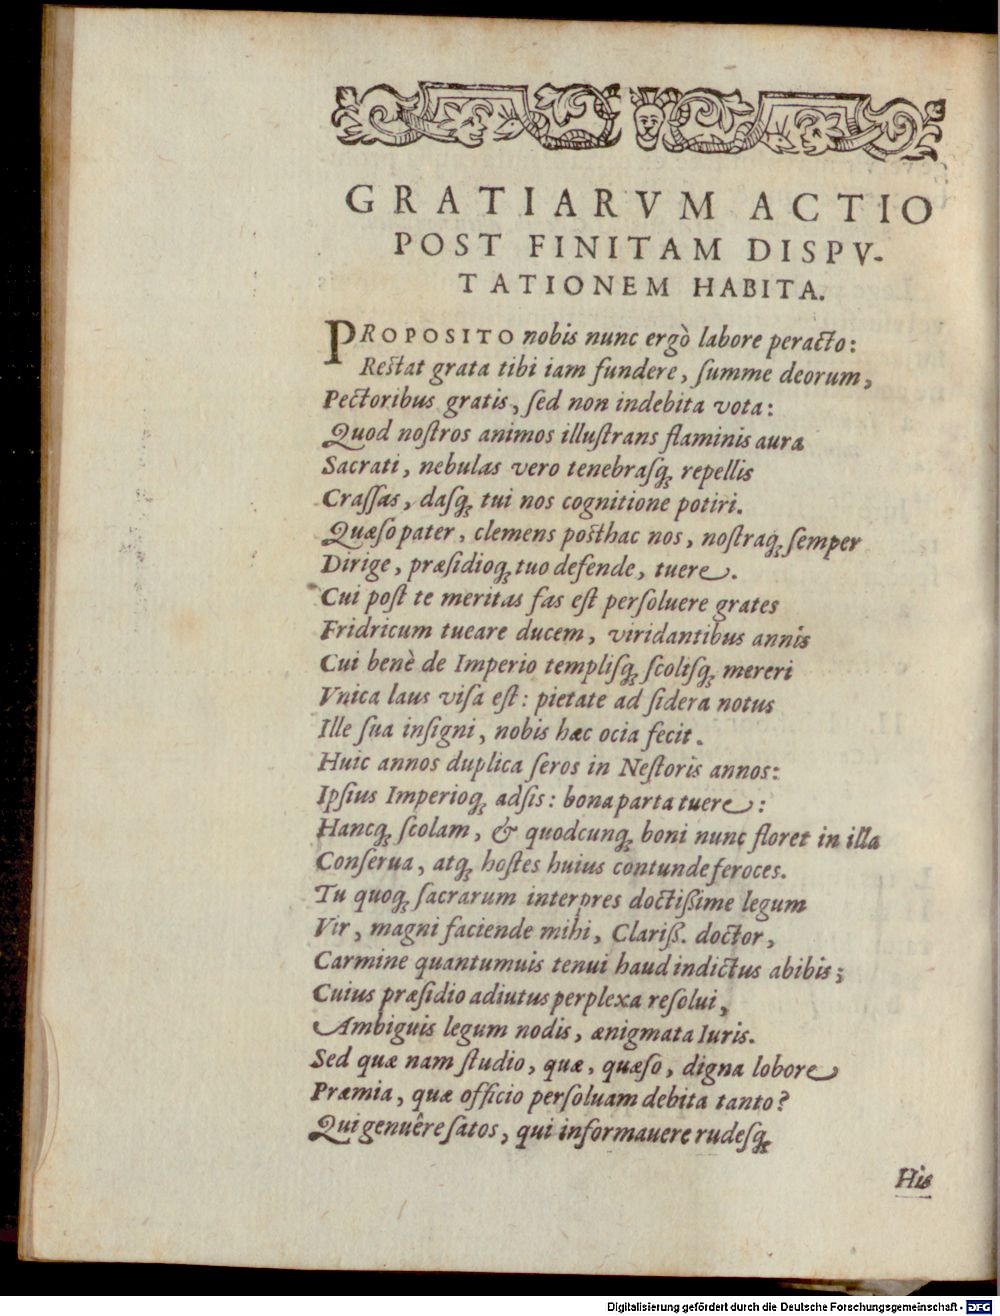 GRATIARVM ACTIO
POST FINITAM DISPV-
TATIONEM HABITA.
PROPOSITO nobis nunc ergò labore peracto:
Restat grata tibi iam fundere, summe deorum,
Pectoribus gratis, sed non indebita vota:
Quod nostros animos illustrans flaminis aura
Sacrati, nebulas vero tenebrasq́; repellis
Crassas, dasq́; tui nos cognitione potiri.
Quæso pater, clemens posthac nos, nostraq́; semper
Dirige, præsidioq́; tuo defende, tuere.
Cui post te meritas fas est persoluere grates
Fridricum tueare ducem, viridantibus annis
Cui benè de Imperio templisq́; scolisq́; mereri
Vnica laus visa est: pietate ad sidera notus
Ille sua insigni, nobis hæc ocia fecit.
Huic annos duplica seros in Nestoris annos:
Ipsius Imperioq́; adsis: bona parta tuere:
Hancq́; scolam, & quodcunq́; boni nunc floret in illa
Conserua, atq́; hostes huius contunde feroces.
Tu quoq́; sacrarum interpres doctißime legum
Vir, magni faciende mihi, Clariß. doctor,
Carmine quantumuis tenui haud indictus abibis;
Cuius præsidio adiutus perplexa resolui,
Ambiguis legum nodis, ænigmata Iuris.
Sed quæ nam studio, quæ, quæso, digna lobore
Præmia, quæ officio persoluam debita tanto?
Qui genuêre satos, qui informauere rudesq́;
His
Digitalisierung gefördert durch die Deutsche Forschungsgemeinschaft - DFG